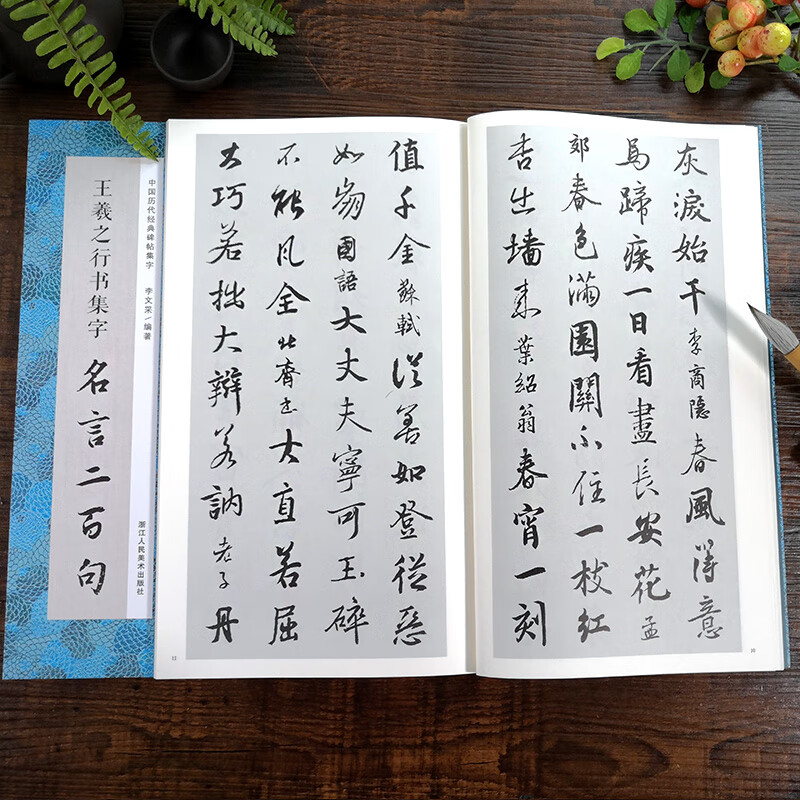 中国历代经典碑帖集字 李文采／编著
王羲之行书集字
名言二百句
浙江人民美术出版社
灰淚始干李商隱春風得意
馬蹄疾一日看盡長安花孟
郊春色滿園關不住一枝紅
杏出墙來葉紹翁春宵一刻
10
值千金蘇軾從善如登從惡
如崩國語大丈夫寧可玉碎
不能瓦全北齊書大直若屈
大巧若拙大辯若訥老子丹
11